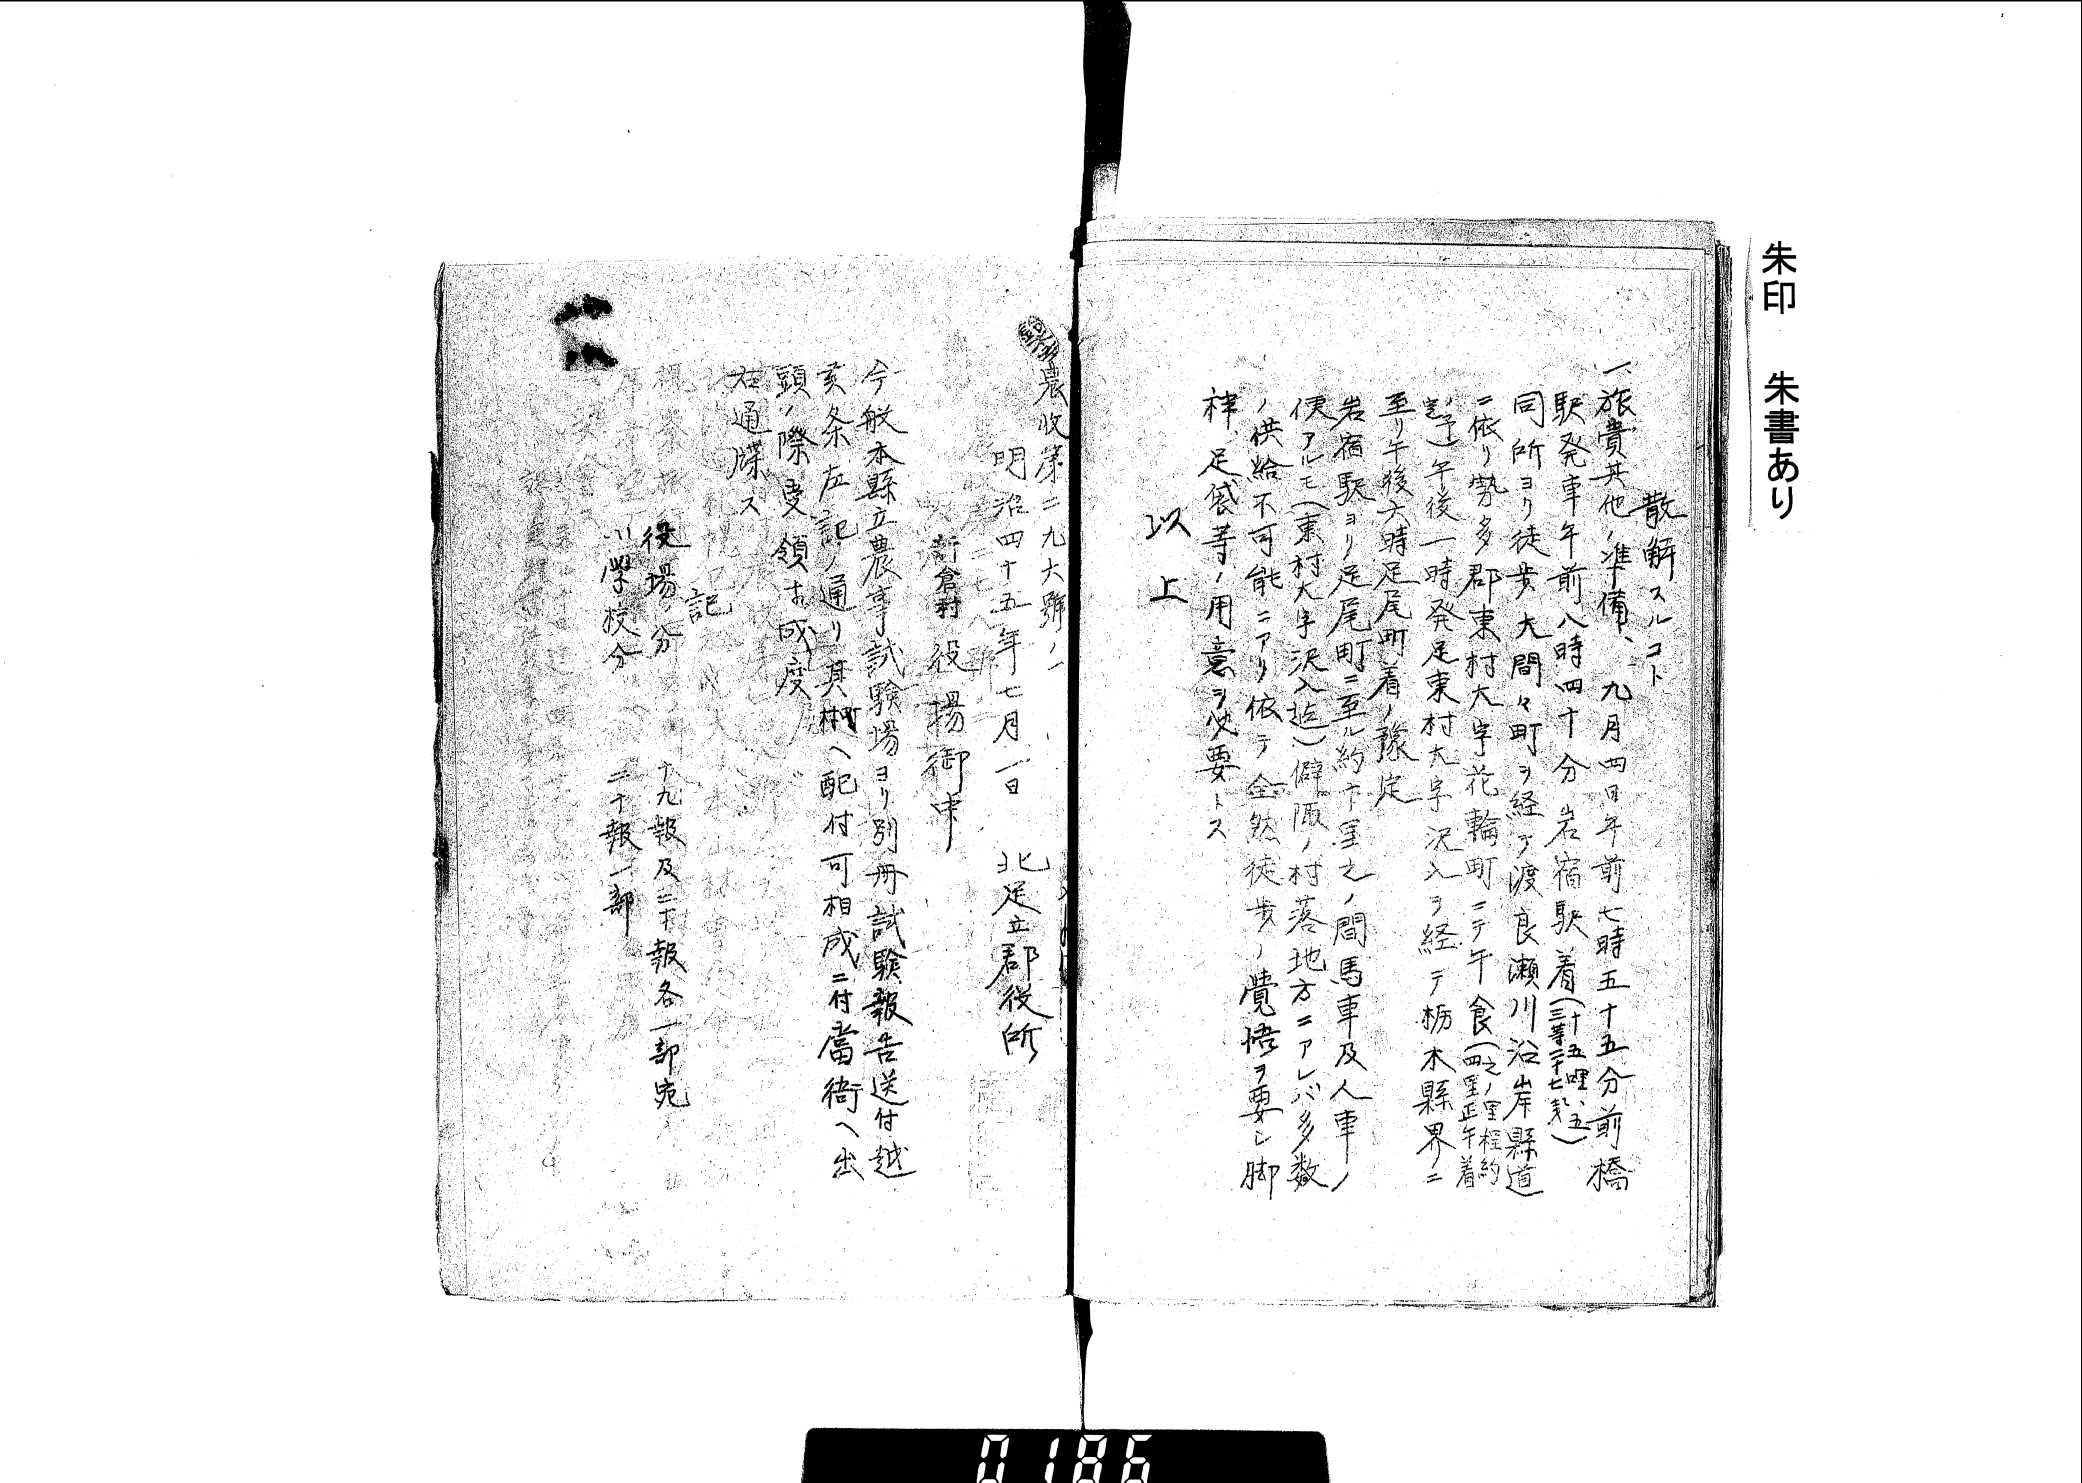 朱印　朱書あり
散解スルコト
一、旅費其他ノ準備、九月四日午前七時五十五分前橋
駅発車午前八時四十分岩宿駅着(十五哩、五)(三等二十七銭)
同所ヨリ徒歩大間々町ヲ経テ渡良瀬川沿岸縣道
ニ依リ勢多郡東村大字花輪町ニテ午食(之ノ里程約四里正午着
ノ予)午後一時発足東村大字沢入ヲ経テ栃木縣界ニ
至リ午後六時足尾町着ノ豫定
岩宿駅ヨリ足尾町ニ至ル約十里之ノ間馬車及人車ノ
便アルモ(東村大字沢入迄)僻陬ノ村落地方ニアレバ多数
ノ供給不可能ニアリ依テ全然徒歩ノ覺悟ヲ要シ脚
袢、足袋等ノ用意ヲ必要トス
以上
農收第二九六號ノ一
明治四十五年七月一日　北足立郡役所
新倉村役場御中
今般本縣立農事試験場ヨリ別冊試験報告送付越
候条左記ノ通リ其村ヘ配付可相成ニ付當衙ヘ出
頭ノ際受領相成度
右通牒ス
記
役場ノ分　十九報及二十報各一部宛
小學校分　二十報一部
0186